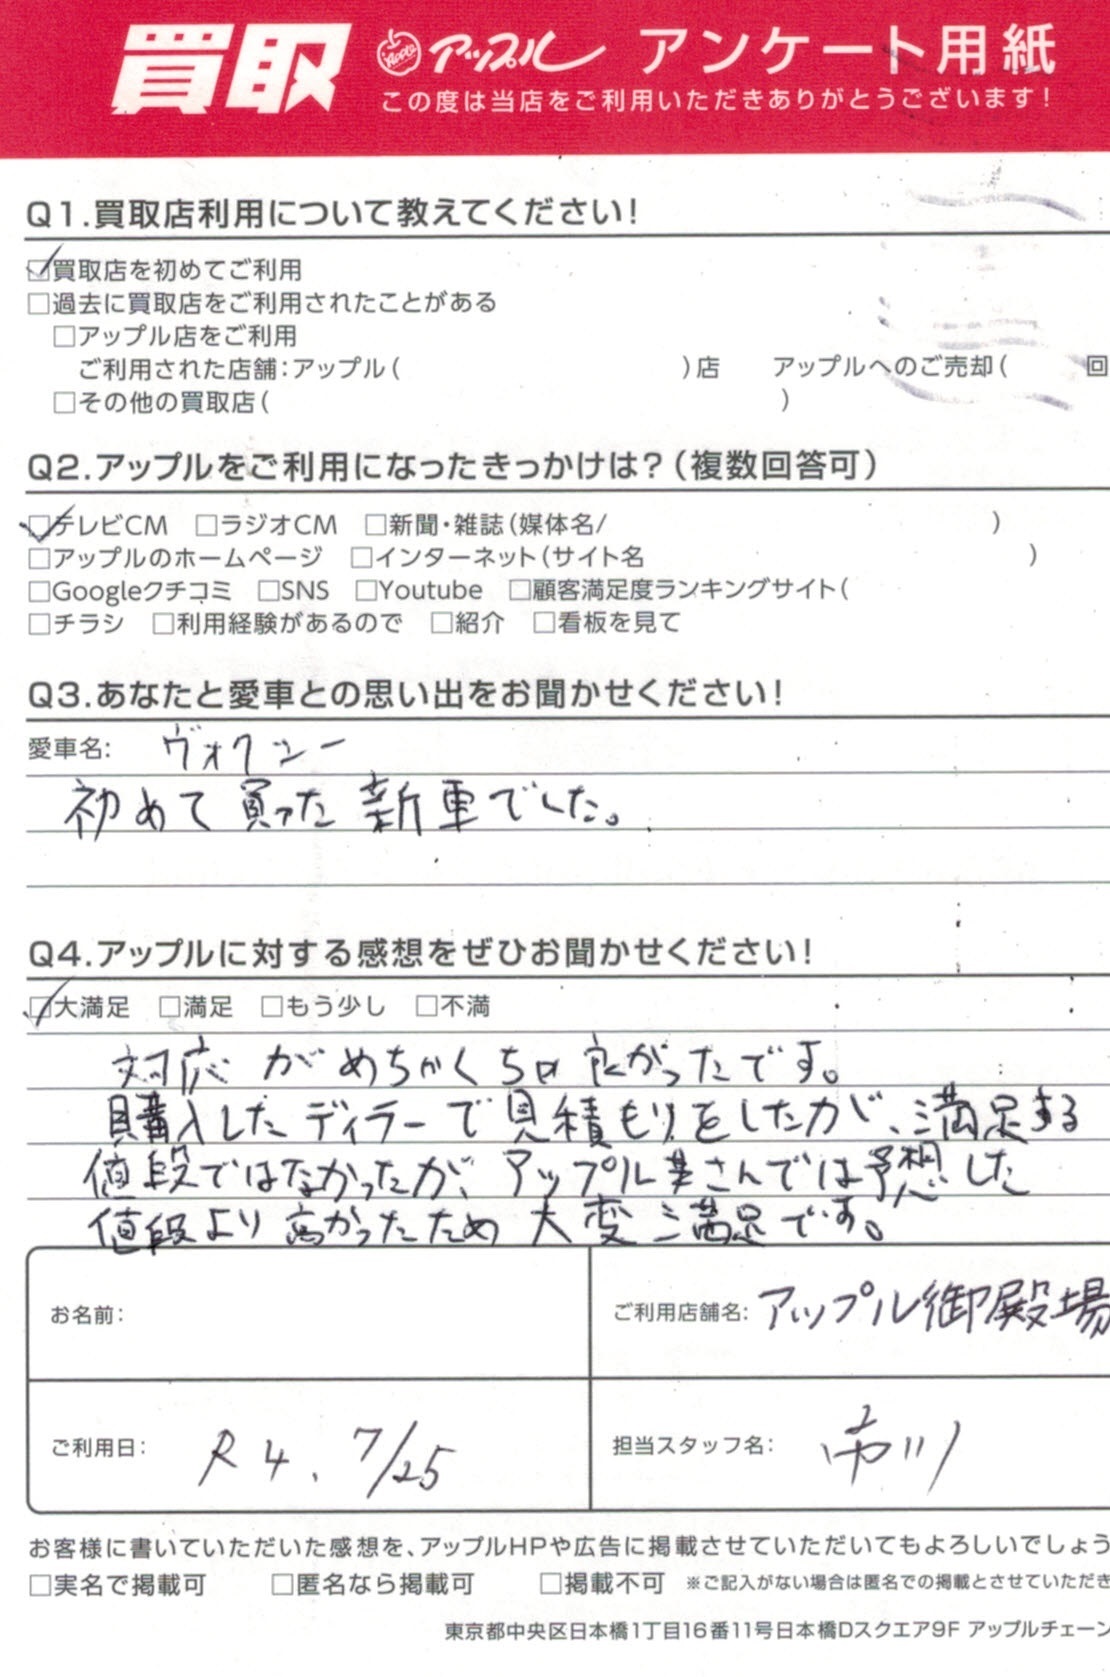 買取 Apple アップル アンケート用紙
この度は当店をご利用いただきありがとうございます!
Q1.買取店利用について教えてください!
☑買取店を初めてご利用
□過去に買取店をご利用されたことがある
□アップル店をご利用
ご利用された店舗:アップル( )店 アップルへのご売却( 回
□その他の買取店( )
Q2.アップルをご利用になったきっかけは?(複数回答可)
☑テレビCM □ラジオCM □新聞・雑誌(媒体名/ )
□アップルのホームページ □インターネット(サイト名 )
□Googleクチコミ □SNS □Youtube □顧客満足度ランキングサイト(
□チラシ □利用経験があるので □紹介 □看板を見て
Q3.あなたと愛車との思い出をお聞かせください!
愛車名: ヴォクシー
初めて買った新車でした。
Q4.アップルに対する感想をぜひお聞かせください!
☑大満足 □満足 □もう少し □不満
対応がめちゃくちゃ良かったです。
購入したディラーで見積もりをしたが、満足する
値段ではなかったが、アップルさんでは予想した
値段より高かったため大変満足です。
お名前:
ご利用店舗名: アップル御殿場
ご利用日: R4. 7/25
担当スタッフ名: 市川
お客様に書いていただいた感想を、アップルHPや広告に掲載させていただいてもよろしいでしょう
□実名で掲載可 □匿名なら掲載可 □掲載不可 ※ご記入がない場合は匿名での掲載とさせていただき
東京都中央区日本橋1丁目16番11号日本橋Dスクエア9F アップルチェーン